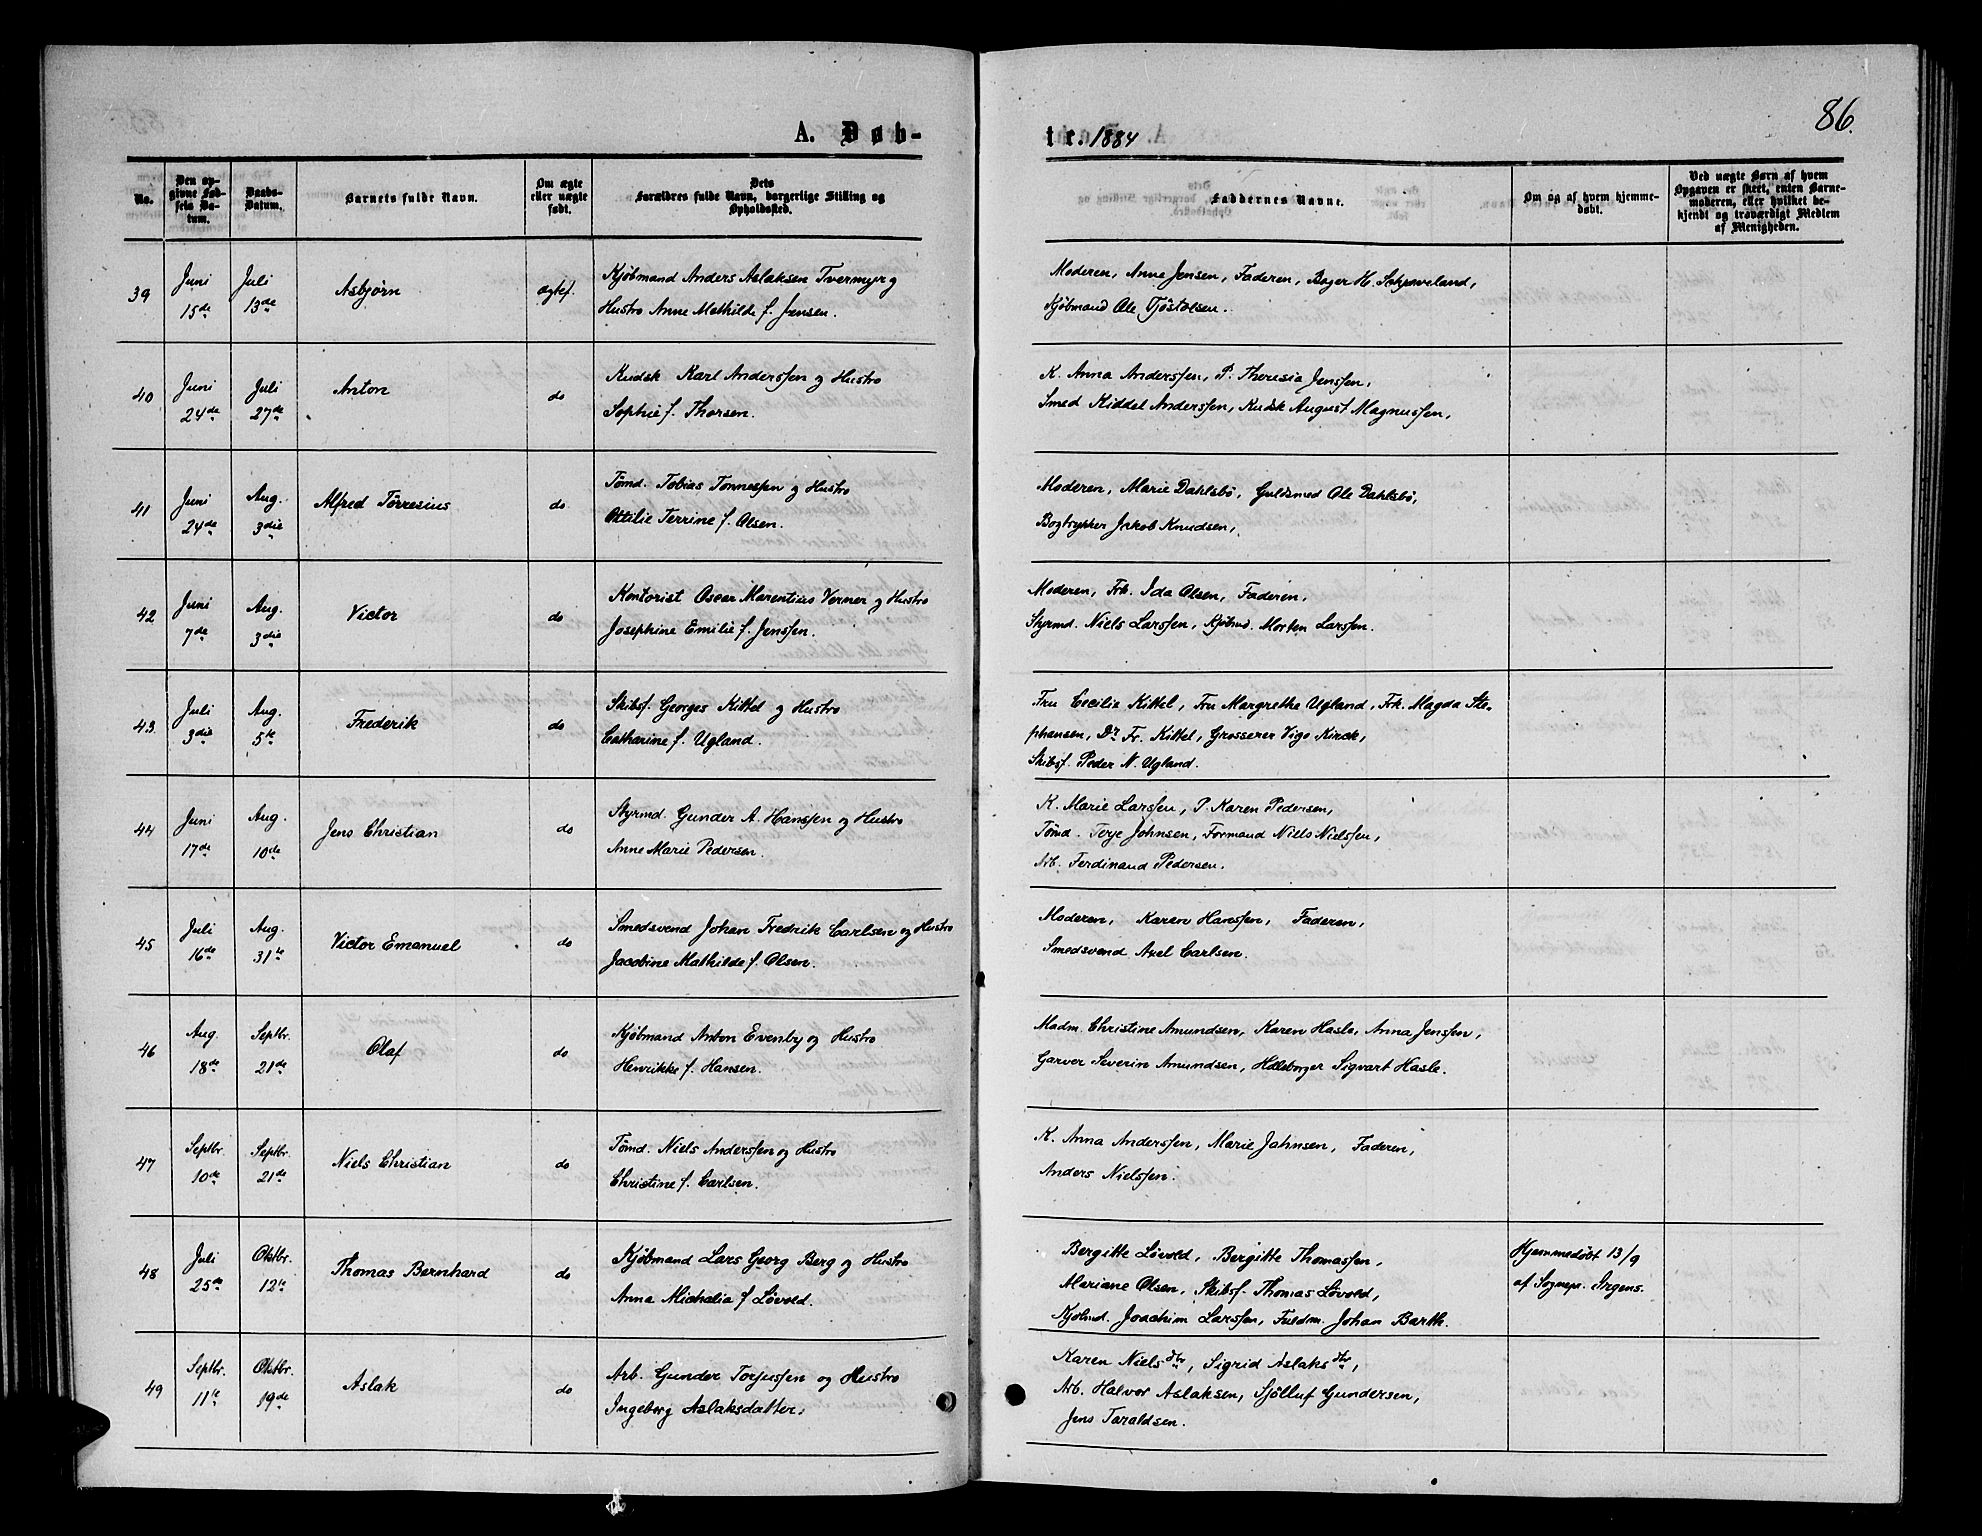 86.
A. Døb-
te. 1884
No.
Den opgivne Fødsels Datum.
Daabs-Datum.
Barnets fulde Navn.
Om ægte eller uægte født.
Dets Forældres fulde Navn, borgerlige Stilling og Opholdssted.
Faddernes Navne.
Om og af hvem hjemmedøbt.
Ved uægte Børn af hvem Opgaven er skeet, enten Barnemoderen, eller hvilket bekjendt og troværdigt Medlem af Menigheden.
39 Juni 15de Juli 13de Asbjørn ægtef.
Kjøbmand Anders Aslaksen Tvermyr og
Hustro Anne Mathilde f. Jensen.
Moderen, Anne Jensen, Faderen, Bager H. Schraveland,
Kjøbmand Ole Tjöstolsen.
40 Juni 24de Juli 27de Anton do
Kudsk Karl Anderssen og Hustro
Sophie f. Thorsen.
K. Anna Anderssen, P. Theresia Jenssen,
Smed Kiddel Anderssen, Kudsk August Magnussen,
41 Juni 24de Aug. 3die Alfred Törresius do
Tömd. Tobias Tönnessen og Hustro
Ottilie Terrine f. Olsen.
Moderen, Marie Dahlsbö, Guldsmed Ole Dahlsbö,
Bogtrykker Jakob Knudsen,
42 Juni 7de Aug. 3die Victor do
Kontorist Oscar Marentius Verner og Hustro
Josephine Emilie f. Jenssen.
Moderen, Frk. Ida Olsen, Faderen,
Styrmd. Niels Larssen, Kjöbmd. Morten Larssen.
43. Juli 3die Aug. 5te Frederik do
Skibsf. Georges Kittel og Hustro
Catharine f. Ugland.
Fru Cecilie Kittel, Fru Margrethe Ugland, Frk. Magda Ste-
phansen, Dr Fr. Kittel, Grosserer Vigo Kirck,
Skibsf. Peder N. Ugland.
44 Juni 17de Aug. 10de Jens Christian do
Styrmd. Gunder A. Hanssen og Hustro
Anne Marie Pedersen.
K. Marie Larssen, P. Karen Pedersen,
Tömd. Terje Johnsen, Formand Niels Nielssen,
Arb. Ferdinand Pedersen.
45 Juli 16de Aug. 31te Victor Emanuel do
Smedsvend Johan Fredrik Carlsen og Hustro
Jacobine Mathilde f. Olsen.
Moderen, Karen Hanssen, Faderen,
Smedsvend Axel Carlsen.
46 Aug. 18de Septbr. 21de Olaf do
Kjöbmand Anton Evenby og Hustro
Henrikke f. Hansen.
Madm. Christine Amundsen, Karen Hasle, Anna Jenssen,
Garver Severin Amundsen, Höleborger Sigvart Hasle.
47 Septbr. 10de Septbr. 21de Niels Christian do
Tömd. Niels Anderssen og Hustro
Christine f. Carlsen.
K. Anna Anderssen, Marie Jahnsen, Faderen,
Anders Nielssen.
48 Juli 25de Oktbr. 12te Thomas Bernhard do
Kjöbmand Lars Georg Berg og Hustro
Anna Michalia f. Lövold.
Bergitte Lövold, Bergitte Thomassen,
Mariane Olsen, Skibsf. Thomas Lövold,
Kjöbmd. Joachim Larssen, Fuldm. Johan Barth.
Hjemmedöbt 13/9
af Sognepr. Irgens.
49 Septbr. 11te Oktbr. 19de Aslak do
Arb. Gunder Torjussen og Hustro
Ingeborg Aslaksdatter.
Karen Nielsdtr, Sigrid Aslaksdtr,
Arb. Halvor Aslaksen, Sjölluf Gundersen,
Jens Taraldsen.